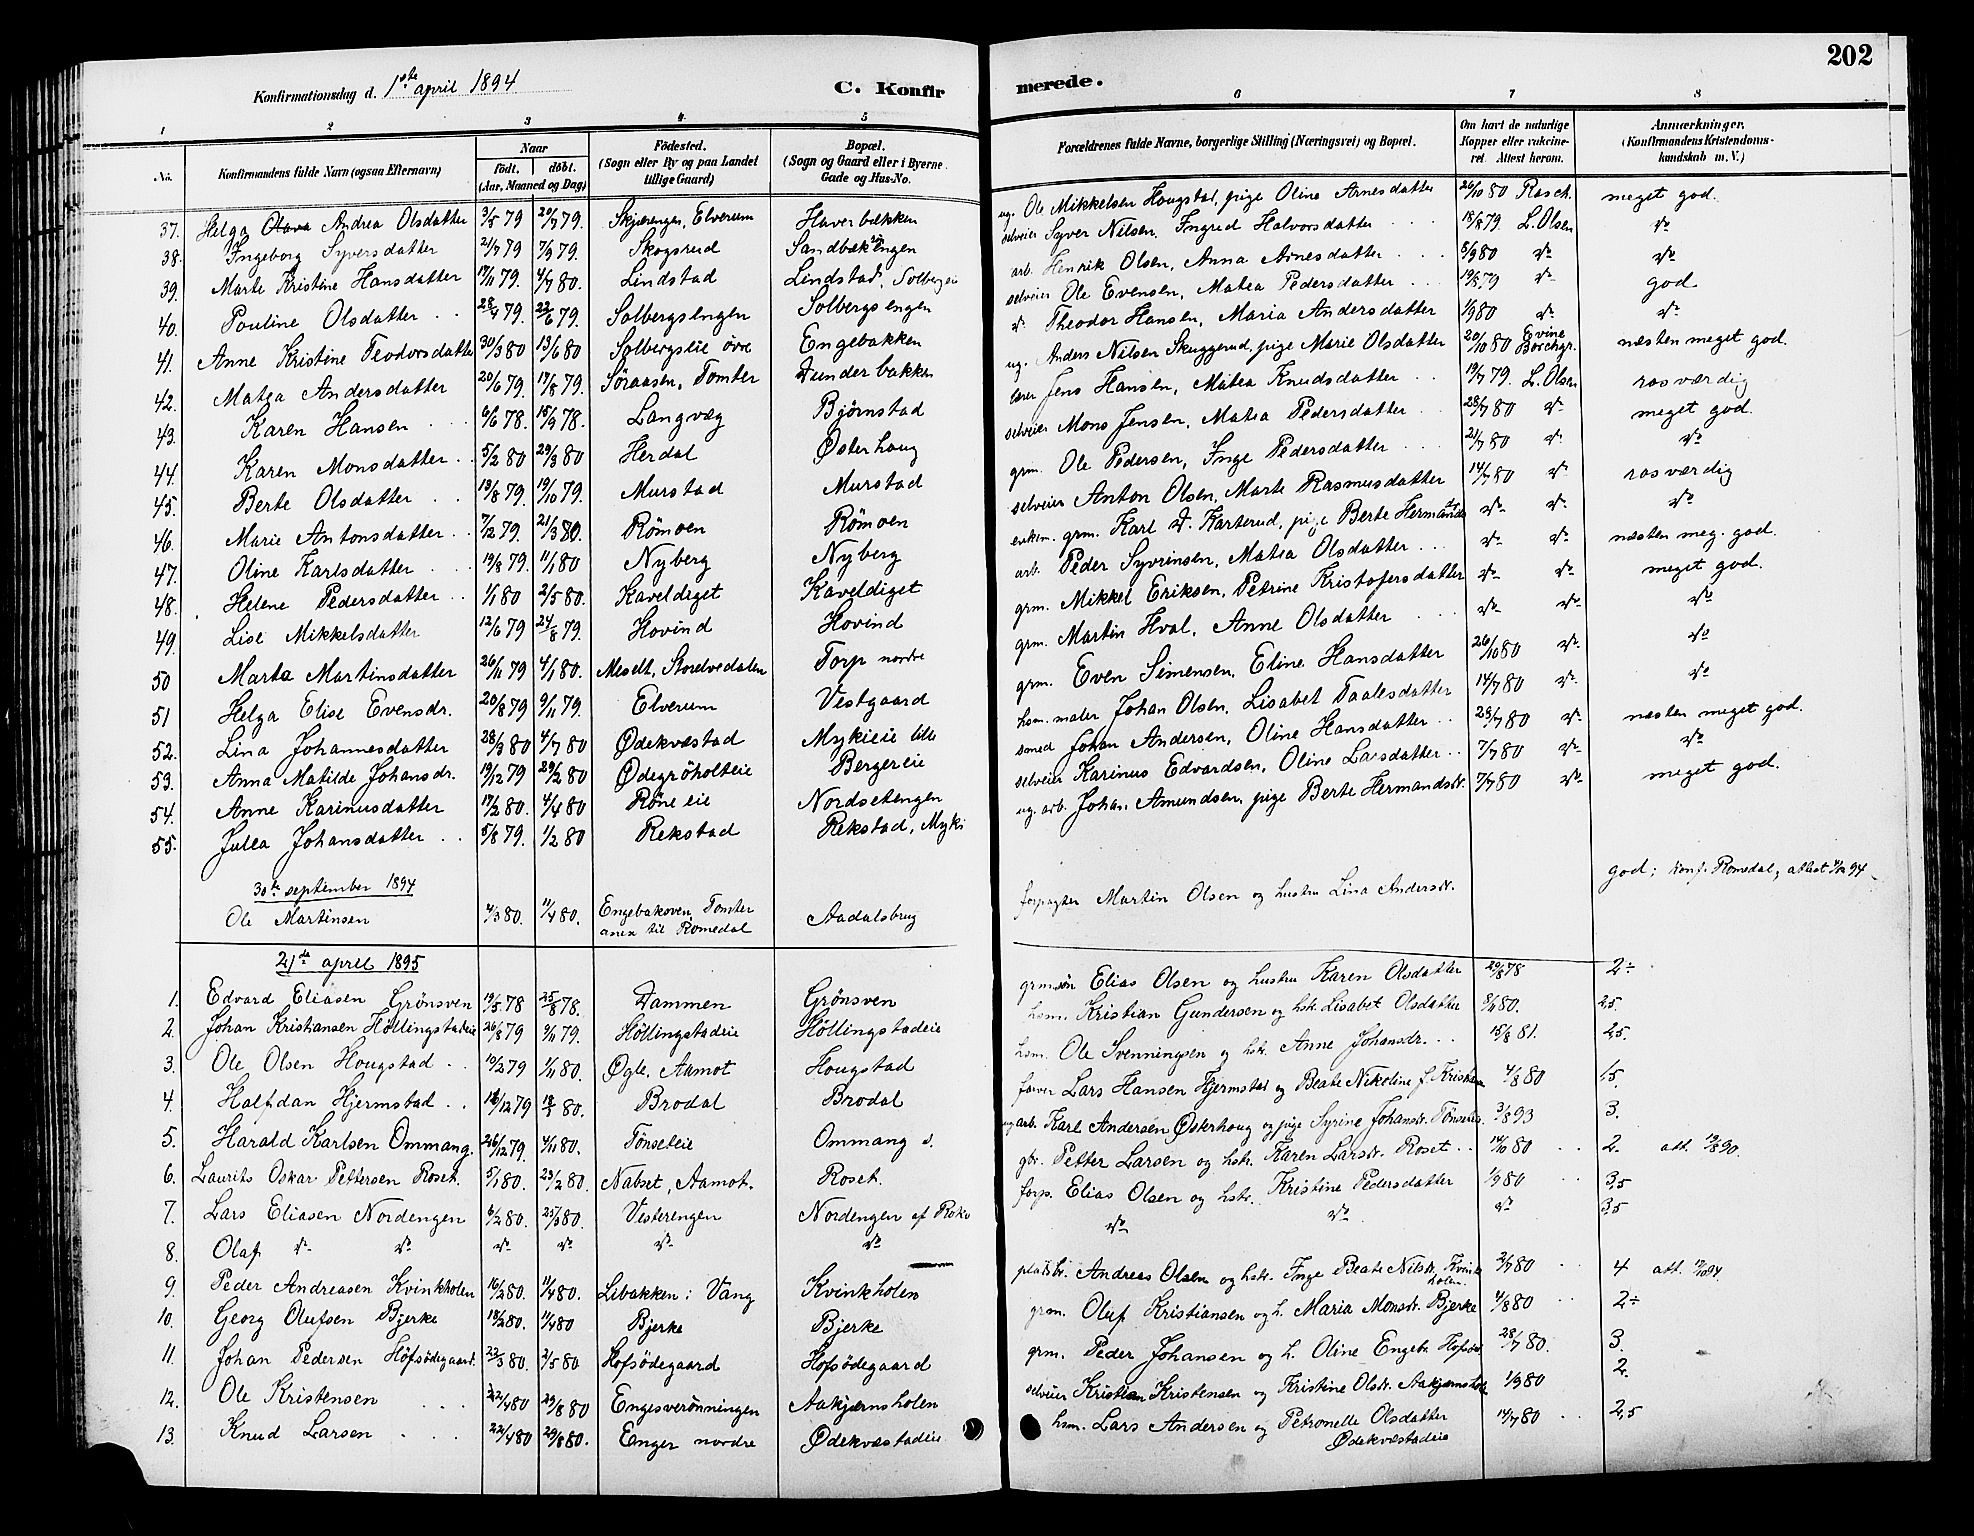 202
Konfirmationsdag d. 1ste april 1894 C. Konfirmerede.
1 2 3 4 5 6 7 8
No. Konfirmandens fulde Navn (ogsaa Efternavn) Naar født. døbt. (Aar, Maaned og Dag) Fødested. (Sogn eller By og paa Landet tillige Gaard) Bopæl. (Sogn og Gaard eller i Byerne Gade og Hus-No. Forældrenes fulde Navne, borgerlige Stilling (Næringsvei) og Bopæl. Om havt de naturlige Kopper eller vakcineret. Attest herom. Anmærkninger. (Konfirmandens Kristendomskundskab m. V.)
37. Helga Olava Andrea Olsdatter 3/5 79 20/7 79. Skjærengen, Elverum Haverbækken ug. Ole Mikkelsen Hougstad, pige Oline Arnesdatter 26/10 80 Rasch. meget god.
38. Ingeborg Syversdatter 21/7 79 7/9 79. Skogsrud Sandbækengen selveier Syver Nilsen, Ingrud Halvorsdatter 18/8 79. L. Olsen do
39. Marte Kristine Hansdatter 17/11 79. 4/7 80. Lindstad Lindstad, Solbergeie arb. Henrik Olsen, Anna Arnesdatter 5/9 80 do do
40. Pouline Olsdatter 28/4 79. 22/6 79. Solbergsengen Solbergsengen selveier Ole Evensen, Matea Pedersdatter 19/8 79 do god
41. Anne Kristine Teodorsdatter 30/3 80 13/6 80 Solbergseie øvre Engebakken do Theodor Hansen, Maria Andersdatter 1/9 80 do do
42. Matea Andersdatter 20/6 79. 17/8 79. Søraasen, Tomter Dunderbakken ug. Anders Nilsen Skuggerud, pige Marie Olsdatter 20/10 80 Evine Borchgr. næsten meget god.
43. Karen Hansen 6/6 78. 15/9 78. Langvæg Bjørnstad lærer Jens Hansen, Matea Knudsdatter 19/7 79. L. Olsn rosværdig
44. Karen Monsdatter 5/2 80 29/3 80 Herdal Østerhaug selveier Mons Jensen, Matea Pedersdatter 28/7 80 do meget god.
45. Berte Olsdatter 13/8 79. 19/10 79. Murstad Murstad grm. Ole Pedersen, Inge Pedersdatter 21/7 80 do do
46. Marie Antonsdatter 7/12 79. 21/3 80. Rømoen Rømoen selveier Anton Olsen, Marte Rasmusdatter 14/7 80 do rosværdig
47. Oline Karlsdatter 19/8 79. 11/1 80 Nyberg Nyberg enkem. grm. Karl A. Karterud, pige Berte Hermandsdr do do do
48. Helene Pedersdatter 1/1 80 2/5 80. Kaveldiget Kaveldiget arb. Peder Syvrinsen, Matea Olsdatter do do næsten meg. god.
49. Lise Mikkelsdatter 12/6 79 24/8 79. Hovind Hovind grm. Mikkel Eriksen, Petrine Kristofersdatter do do meget god.
50 Marte Martinsdatter 26/11 79 4/1 80. Meselt, Storelvedalen Torp nordre grm. Martin Hval, Anne Olsdatter do do do
51 Helga Elise Evensdr. 20/8 79 9/11 79. Elverum Vestgaard grm. Even Simensen, Eline Hansdatter 26/10 80 do do
52. Lina Johannesdatter 28/3 80 4/7 80 Ødekvæstad Mykieie lille hsm. maler Johan Olsen, Lisabet Taalesdatter 14/7 80 do do
53. Anna Matilde Johansdr. 19/12 79 29/2 80 Ødegrøholteie Bergereie smed Johan Andersen, Oline Hansdatter 23/7 80 do næsten meget god.
54. Anne Karinusdatter 17/2 80. 4/4 80 Røneeie Nordsetengen selveier Karinus Edvardsen, Oline Larsdatter 7/7 80 do do
55. Julla Johansdatter 5/8 79. 1/2 80 Rekstad Rekstad, Myki ug. arb. Johan Amundsen, pige Berte Hermandsdr. 7/7 80 do meget god.
30te september 1894
Ole Martinsen 4/3 80. 11/4 80. Engebakoven, Tomter anex til Romedal Aadalsbrug forpagter Martin Olsen og hustru Lina Andersdr. god; konf. Romedal, attest 94
21de april 1895
1. Edvard Eliasen Grønsven 19/5 78 25/8 78. Dammen Grønsven grmsøn Elias Olsen og hustru Karen Olsdatter 29/8 78 2÷
2. Johan Kristiansen Høllingstadeie 26/8 79 9/11 79. Høllingstadeie Høllingstadeie hsm. Kristian Gundersen og hstr. Lisabet Olsdatter 8/9 80. 2,5.
3. Ole Olsen Hougstad 19/12 79 1/11 80. Øgle. Aamot Hougstad hsm. Ole Svenningsen og hstr. Anne Johansdr. 15/8 81. 2,5.
4. Halfdan Hjermstad 18/12 79 18/3 80. Brodal Brodal farver Lars Hansen Hjermstad og Beate Nikoline f. Kristian 4/8 80 1,5.
5. Harald Karlsen Ommang. 26/12 79. 4/11 80. Tønseteie Ommang s. ug arb. Karl Andersen Østerhoug og pige Syrine Johansdr. Tønseteie 3/8 93 3.
6. Laurits Oskar Pettersen Roset. 5/1 80. 23/2 80. Nabset, Aamot. Roset. gbr. Petter Larsen og hstr. Karen Larsdr. Roset 14/10 80 2. att. 19/8 90.
7. Lars Eliasen Nordengen 6/2 80. 25/3 80. Vesterengen Nordengen af Roko forp. Elias Olsen og hstr. Kristine Pedersdatter 1/9 80 3,5
8. Olaf do do do do do do do do do 3,5
9. Peder Andreasen Kvinkholen 16/2 80. 11/4 80. Libakken i Vang Kvinkholen pladsbr. Andreas Olsen og hstr. Inge Beate Nilsdr. Kvinkholen. 2/7 80 4 att. 94.
10. Georg Olufsen Bjerke 18/2 80. 11/4 80 Bjerke Bjerke grm. Oluf Kristiansen og h. Maria Monsdr. Bjerke 4/8 80 2÷
11. Johan Pedersen Høfsødegaard. 22/3 80. 2/5 80 Hofsødegaard Hofsødegaard grm. Peder Johansen og h. Oline Engebr. Hofsød 28/7 80. 3.
12. Ole Kristensen 22/4 80 29/8 80 Engesverønningen Aakjernsholen selveier Kristian Kristensen og Kristine Olsdr. Aakjernshole 1/9 80 2.
13. Knud Larsen 22/4 80 29/8 80. Enger nordre Ødekvæstadeie hsm. Lars Andersen og Petronelle Olsdatter Ødekvæstadeie 14/7 80 2,5